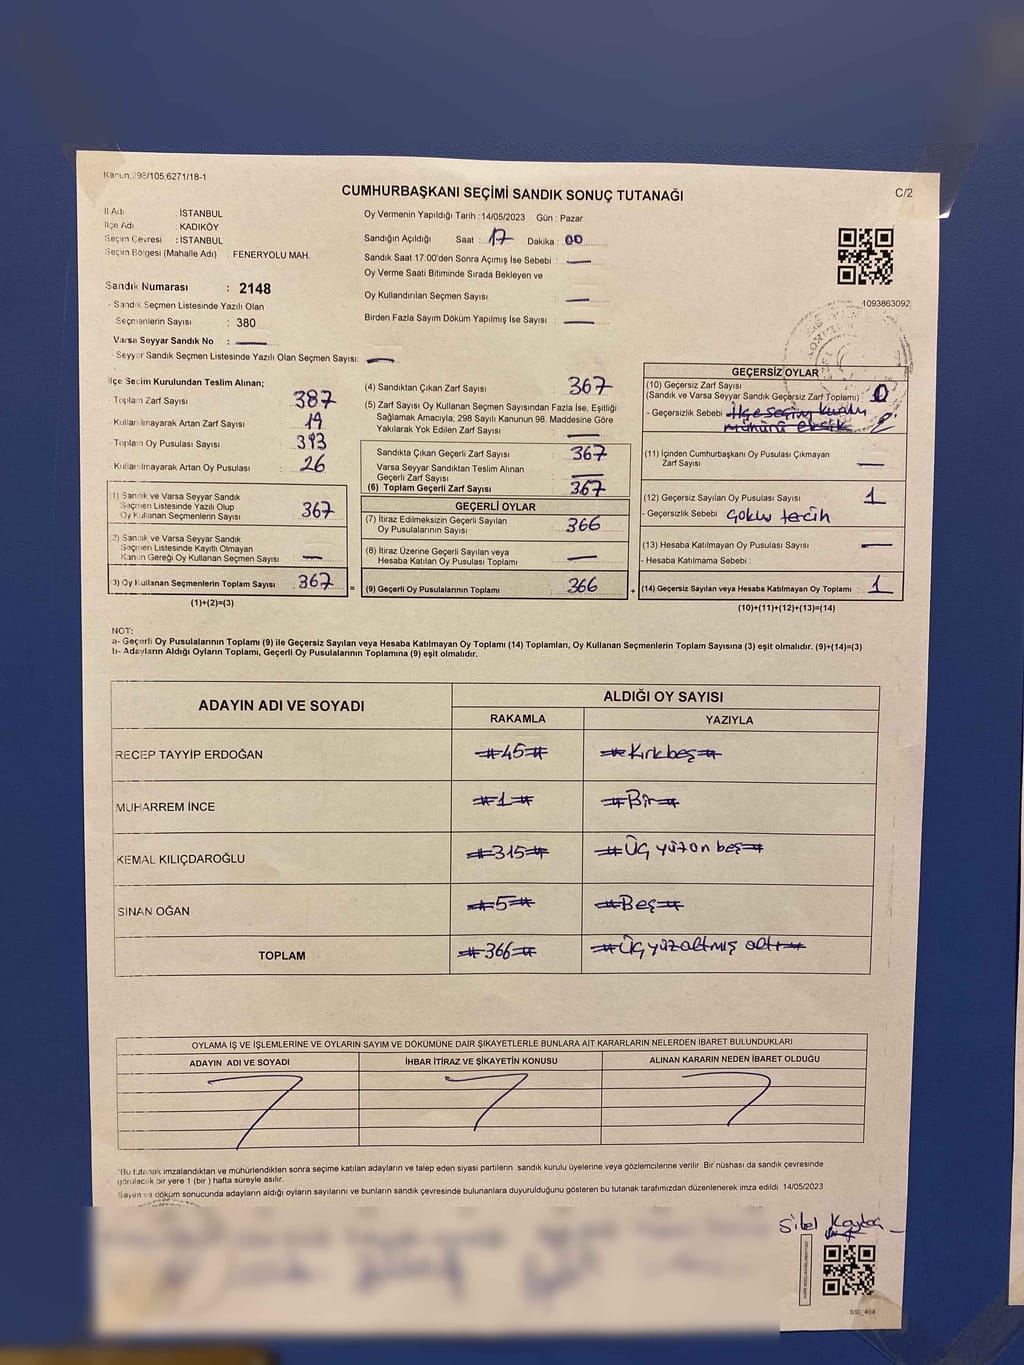 Kanun;298/105;6271/18-1
CUMHURBAŞKANI SEÇİMİ SANDIK SONUÇ TUTANAĞI
C/2
İl Adı : İSTANBUL
İlçe Adı : KADIKÖY
Seçim Çevresi : İSTANBUL
Seçim Bölgesi (Mahalle Adı) : FENERYOLU MAH.
Oy Vermenin Yapıldığı Tarih :14/05/2023 Gün : Pazar
Sandığın Açıldığı Saat : 17 Dakika : 00
Sandık Saat 17:00'den Sonra Açımış İse Sebebi : —
Oy Verme Saati Bitiminde Sırada Bekleyen ve
Oy Kullandırılan Seçmen Sayısı : —
Birden Fazla Sayım Döküm Yapılmış İse Sayısı : —
1093863092
Sandık Numarası : 2148
- Sandık Seçmen Listesinde Yazılı Olan
Seçmenlerin Sayısı : 380
Varsa Seyyar Sandık No : —
- Seyyar Sandık Seçmen Listesinde Yazılı Olan Seçmen Sayısı: —
İlçe Seçim Kurulundan Teslim Alınan;
- Toplam Zarf Sayısı : 387
- Kullanılmayarak Artan Zarf Sayısı : 19
- Toplam Oy Pusulası Sayısı : 393
- Kullanılmayarak Artan Oy Pusulası : 26
1) Sandık ve Varsa Seyyar Sandık
Seçmen Listesinde Yazılı Olup
Oy Kullanan Seçmenlerin Sayısı : 367
2) Sandık ve Varsa Seyyar Sandık
Seçmen Listesinde Kayıtlı Olmayan
Kanun Gereği Oy Kullanan Seçmen Sayısı : —
3) Oy Kullanan Seçmenlerin Toplam Sayısı : 367
(1)+(2)=(3)
(4) Sandıktan Çıkan Zarf Sayısı : 367
(5) Zarf Sayısı Oy Kullanan Seçmen Sayısından Fazla İse, Eşitliği
Sağlamak Amacıyla, 298 Sayılı Kanunun 98. Maddesine Göre
Yakılarak Yok Edilen Zarf Sayısı : —
Sandıkta Çıkan Geçerli Zarf Sayısı : 367
Varsa Seyyar Sandıktan Teslim Alınan
Geçerli Zarf Sayısı : —
(6) Toplam Geçerli Zarf Sayısı : 367
GEÇERLİ OYLAR
(7) İtiraz Edilmeksizin Geçerli Sayılan
Oy Pusulalarının Sayısı : 366
(8) İtiraz Üzerine Geçerli Sayılan veya
Hesaba Katılan Oy Pusulası Toplamı : —
= (9) Geçerli Oy Pusulalarının Toplamı : 366
GEÇERSİZ OYLAR
(10) Geçersiz Zarf Sayısı
(Sandık ve Varsa Seyyar Sandık Geçersiz Zarf Toplamı) : 0
- Geçersizlik Sebebi : İlçe seçim kurulu
mührü eksik
(11) İçinden Cumhurbaşkanı Oy Pusulası Çıkmayan
Zarf Sayısı : —
(12) Geçersiz Sayılan Oy Pusulası Sayısı : 1
- Geçersizlik Sebebi : Çoklu tercih
(13) Hesaba Katılmayan Oy Pusulası Sayısı : —
- Hesaba Katılmama Sebebi :
+ (14) Geçersiz Sayılan veya Hesaba Katılmayan Oy Toplamı : 1
(10)+(11)+(12)+(13)=(14)
NOT:
a- Geçerli Oy Pusulalarının Toplamı (9) ile Geçersiz Sayılan veya Hesaba Katılmayan Oy Toplamı (14) Toplamları, Oy Kullanan Seçmenlerin Toplam Sayısına (3) eşit olmalıdır. (9)+(14)=(3)
b- Adayların Aldığı Oyların Toplamı, Geçerli Oy Pusulalarının Toplamına (9) eşit olmalıdır.
ADAYIN ADI VE SOYADI ALDIĞI OY SAYISI
RAKAMLA YAZIYLA
RECEP TAYYİP ERDOĞAN #45# #Kırkbeş#
MUHARREM İNCE #1# #Bir#
KEMAL KILIÇDAROĞLU #315# #Üç yüzon beş#
SİNAN OĞAN #5# #Beş#
TOPLAM #366# #Üç yüzaltmış altı#
OYLAMA İŞ VE İŞLEMLERİNE VE OYLARIN SAYIM VE DÖKÜMÜNE DAİR ŞİKAYETLERLE BUNLARA AİT KARARLARIN NELERDEN İBARET BULUNDUKLARI
ADAYIN ADI VE SOYADI İHBAR İTİRAZ VE ŞİKAYETİN KONUSU ALINAN KARARIN NEDEN İBARET OLDUĞU
*Bu tutanak imzalandıktan ve mühürlendikten sonra seçime katılan adayların ve talep eden siyasi partilerin sandık kurulu üyelerine veya gözlemcilerine verilir. Bir nüshası da sandık çevresinde
görülecek bir yere 1 (bir) hafta süreyle asılır.
Sayım ve döküm sonucunda adayların aldığı oyların sayılarını ve bunların sandık çevresinde bulunanlara duyurulduğunu gösteren bu tutanak tarafımızdan düzenlenerek imza edildi. 14/05/2023
Sibel
SSI_404